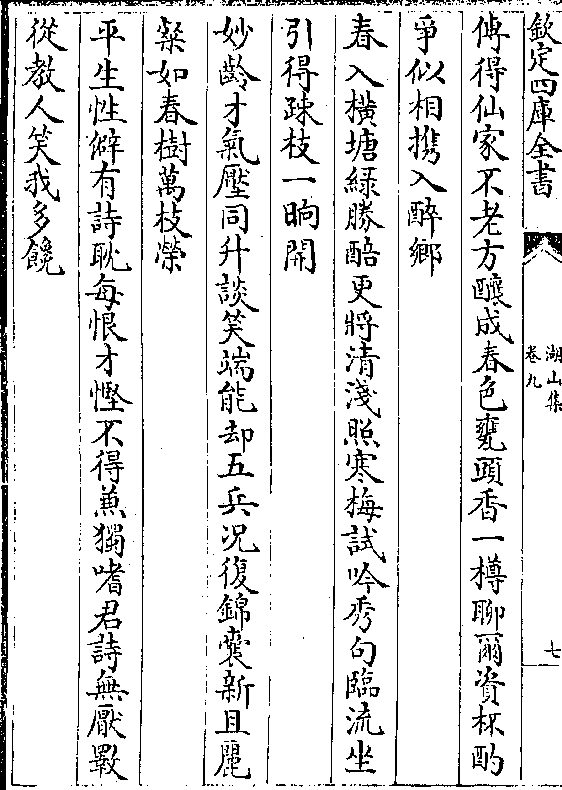 欽定四庫全書
湖山集
卷九
七
傅得仙家不老方釀成春色甕頭香一樽聊爾資杯酌
爭似相携入醉鄉
春入橫塘綠勝醅更將清淺照寒梅試吟秀句臨流坐
引得疎枝一晌開
妙齡才氣壓同升談笑端能却五兵況復錦囊新且麗
粲如春樹萬枝榮
平生性僻有詩耽每恨才慳不得兼獨嗜君詩無厭斁
從教人笑我多饞